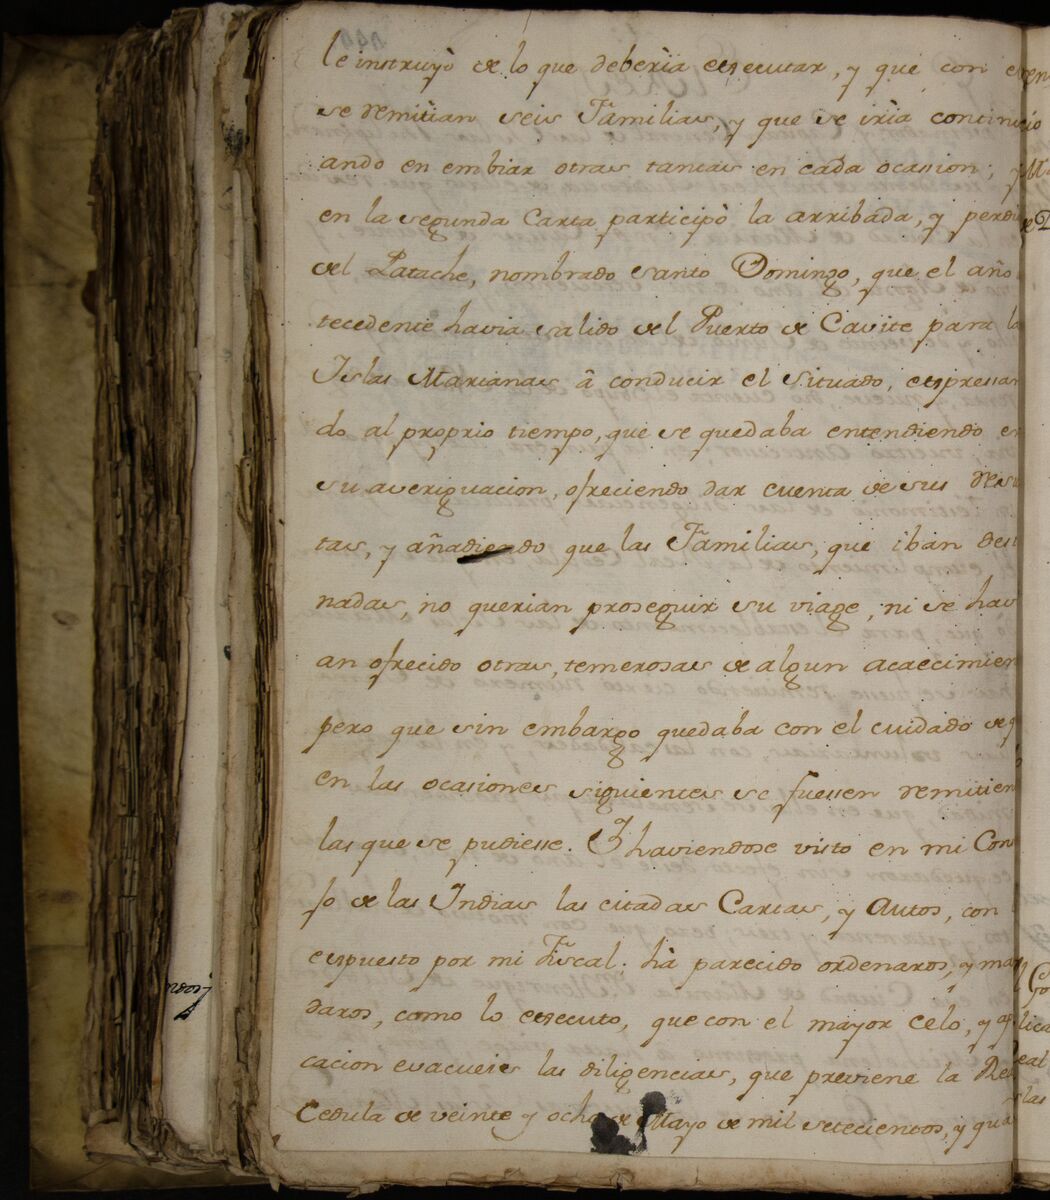 le instruyò de lo que deberìa executar, y que con e
se remitìan seis Familias, y que se irìa continu
ando en embiar otras tantas en cada ocasion; y
en la segunda Carta participò la arribada, y perdi
del Patache, nombrado Santo Domingo, que el año
tecedente havia salido del Puerto de Cavite para la
Islas Marianas â conducir el Situado, expressan
do al proprio tiempo, que se quedaba entendiendo en
su averiguacion, ofreciendo dar cuenta de sus resu
tas, y añadiendo que las Familias, que iban desti
nadas, no querian proseguir su viage, ni se havi
an ofrecido otras, temerosas de algun acaecimien
pero que sin embargo quedaba con el cuidado de q
en las ocasiones siguientes se fuessen remitien
las que se pudiesse. Y haviendose visto en mi Con
jo de las Indias las citadas Cartas, y Autos, con
expuesto por mi Fiscal: hà parecido ordenaros, y man
daros, como lo executo, que con el mayor celo, y apli
cacion evacueis las diligencias, que previene la Rea
Cedula de veinte y ocho de Mayo de mil setecientos, y qua